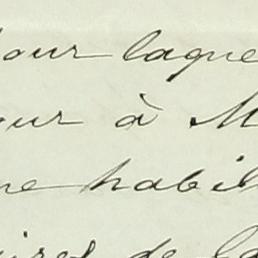 pour laque
our à M
ne habil
ires de la